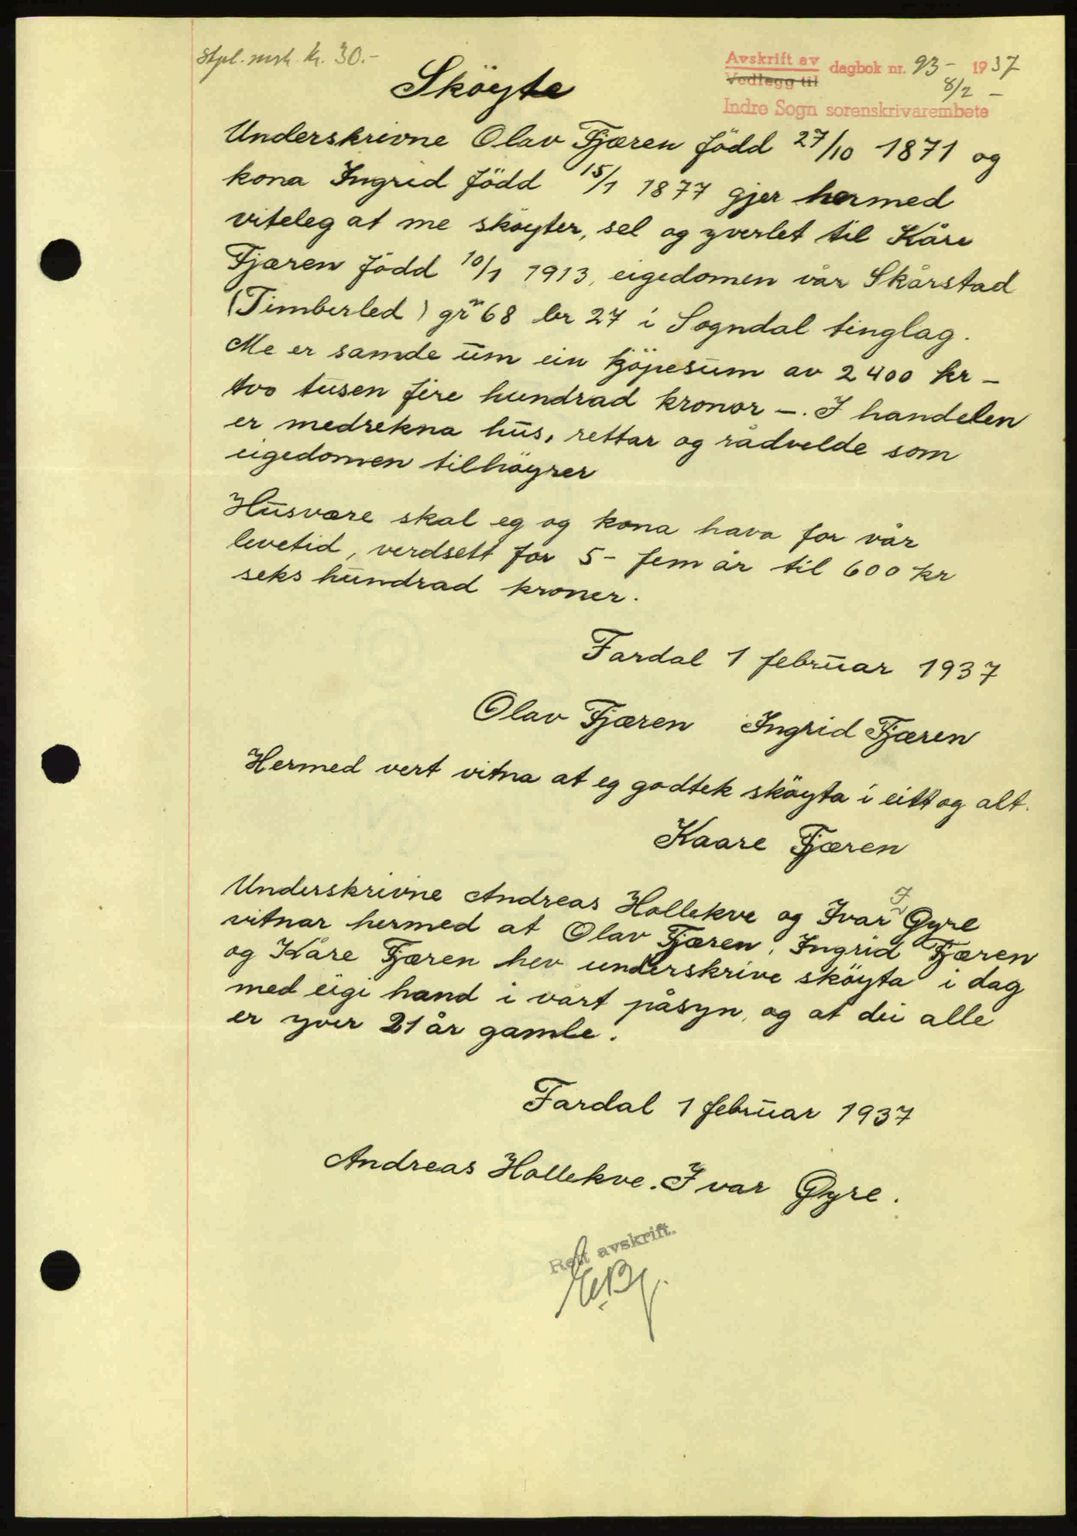 Stpl. mrk kr. 30.-
Avskrift av
Vedlegg til
dagbok nr. 93- 1937
8/2 -
Indre Sogn sorenskrivarembete
Sköyte
Underskrivne Olav Fjæren född 27/10 1871 og
kona Ingrid född 15/1 1877 gjer hermed
viteleg at me sköyter, sel og yverlet til Kåre
Fjæren född 10/1 1913, eigedomen vår Skårstad
(Timberled) gr nr 68 br 27 i Sogndal tinglag.
Me er samde um ein kjöpesum av 2400 kr -
tvo tusen fire hundrad kronor -. I handelen
er medrekna hus, rettar og rådvelde som
eigedomen tilhöyrer
Husvære skal eg og kona hava for vår
levetid, verdsett for 5- fem år til 600 kr
seks hundrad kroner.
Fardal 1 februar 1937
Olav Fjæren Ingrid Fjæren
Hermed vert vitna at eg godtek sköyta i eitt og alt.
Kaare Fjæren
Underskrivne Andreas Hollekve og Ivar I Gyre
vitnar hermed at Olav Fjæren, Ingrid Fjæren
og Kåre Fjæren hev underskrive sköyta i dag
med eigi hand i vårt påsyn, og at dei alle
er yver 21 år gamle.
Fardal 1 februar 1937
Andreas Hollekve. Ivar Gyre.
Rett avskrift.